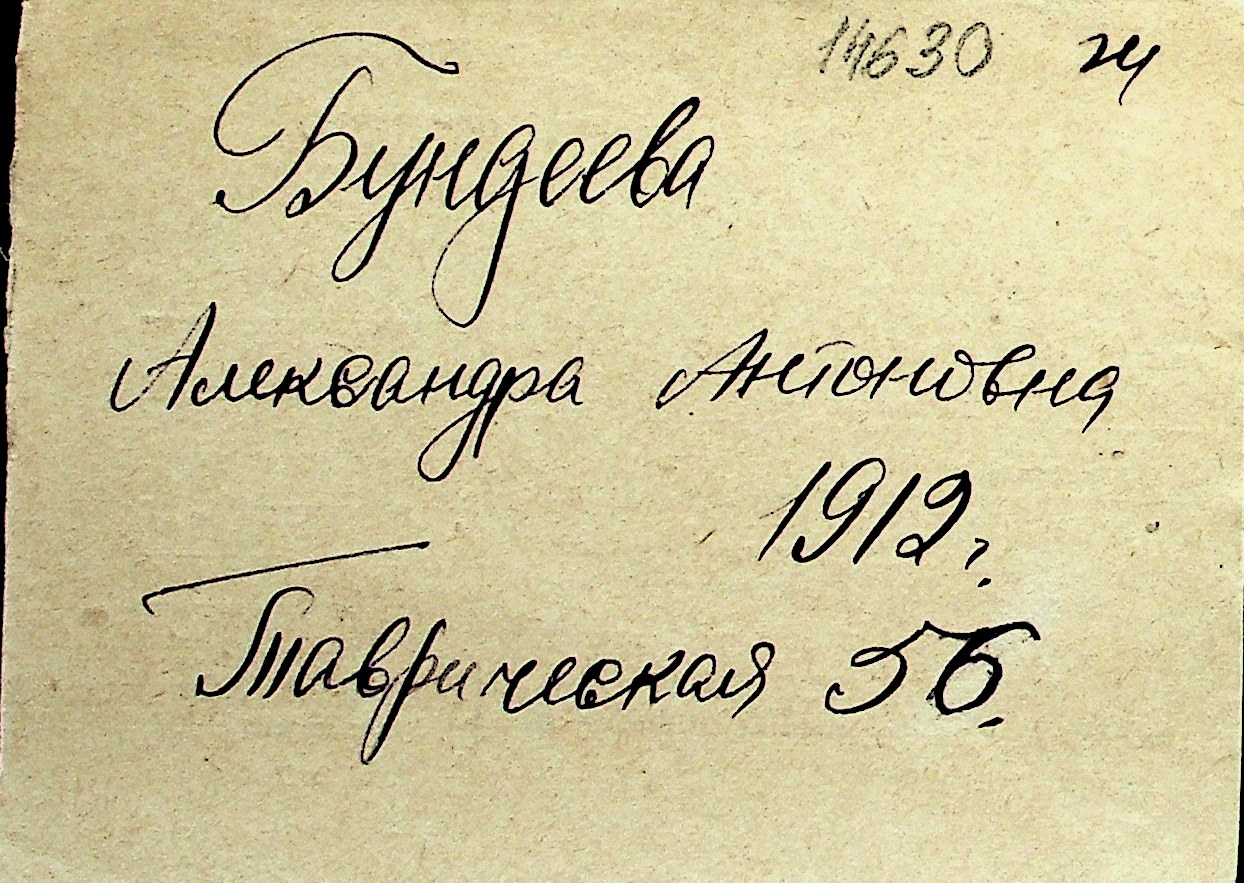 14630 ж
Бундеева
Александра Антоновна
1912 г.
Таврическая 56.